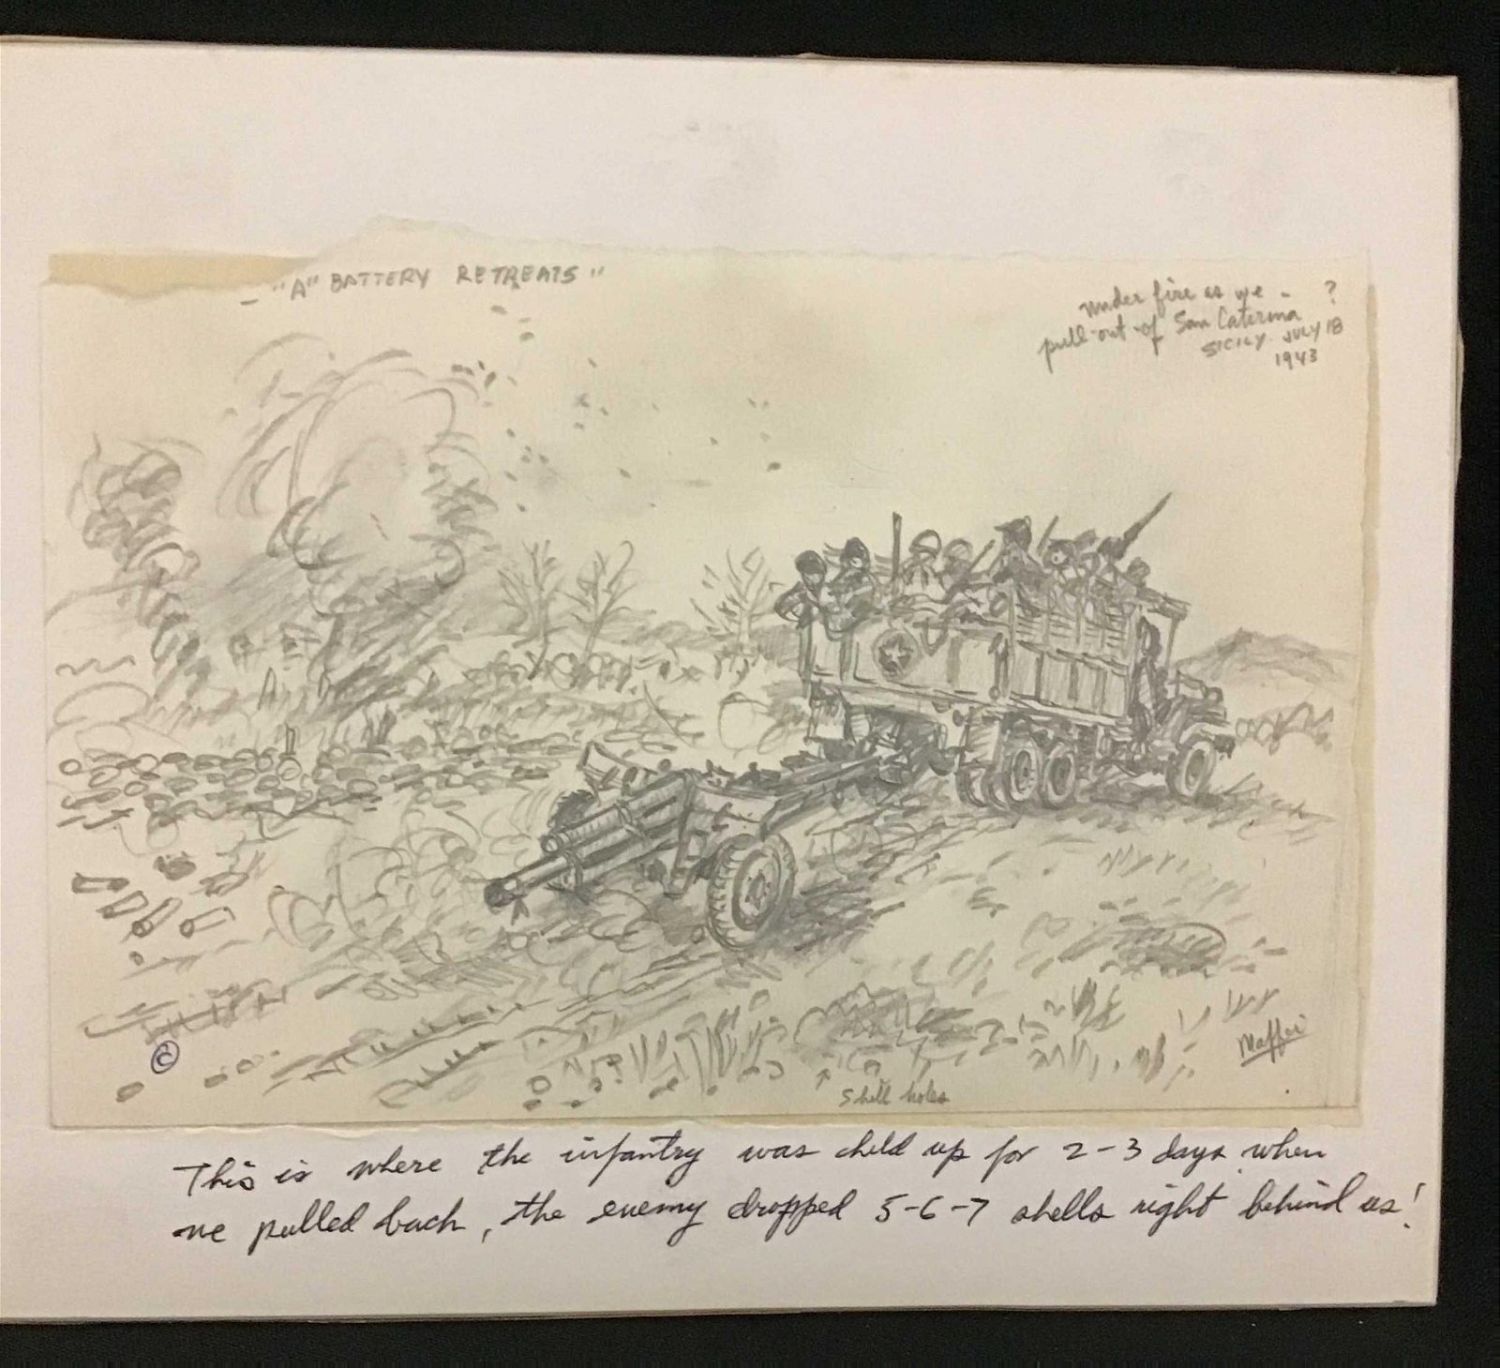 - "A" BATTERY RETREATS"
under fire as we - ?
pull-out-of San Caterina
SICILY. JULY 18
1943
©
Maffei
Shell holes
This is where the infantry was held up for 2-3 days when
we pulled back, the enemy dropped 5-6-7 shells right behind us!